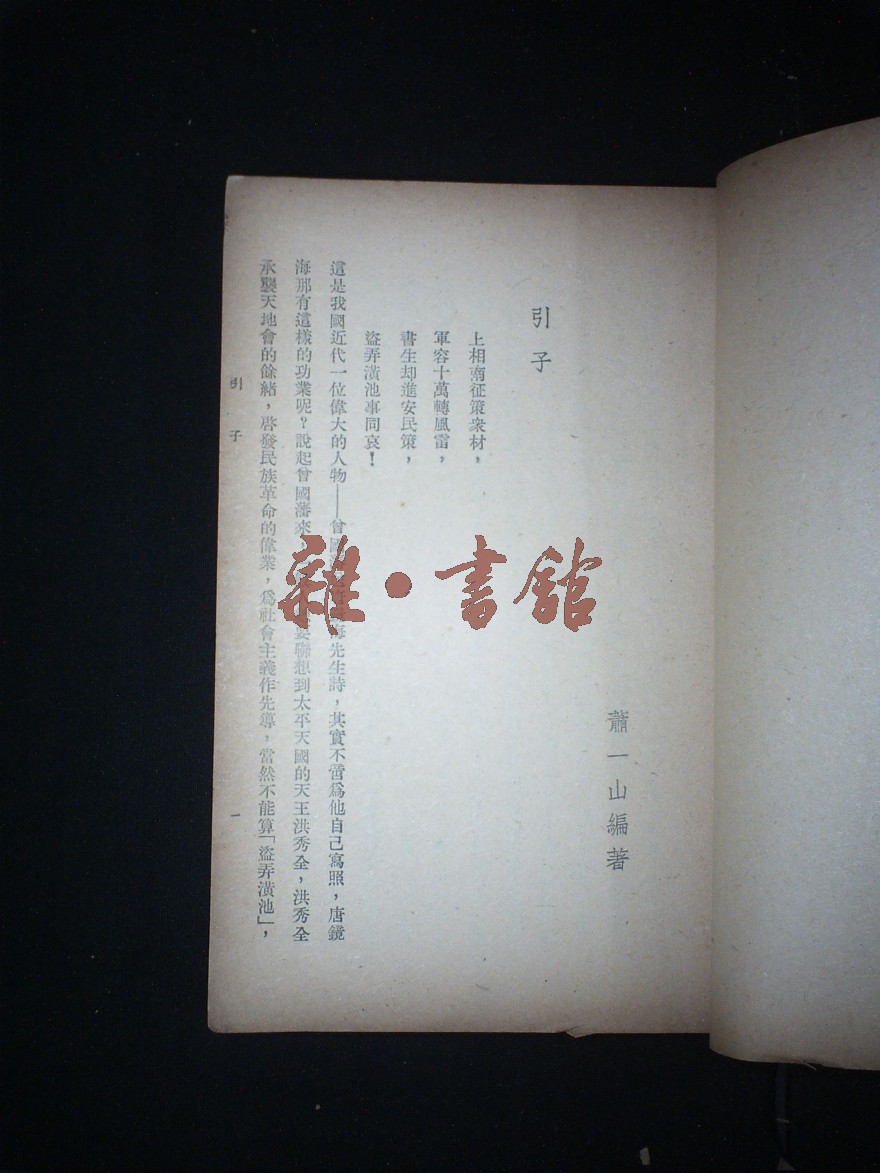 蕭一山編著
引子
上相南征策衆材，
軍容十萬轉風雷，
書生却進安民策，
盜弄潢池事同哀！
這是我國近代一位偉大的人物——曾國海先生詩，其實不啻爲他自己寫照，唐鏡
海那有這樣的功業呢？說起曾國藩來，要聯想到太平天國的天王洪秀全，洪秀全
承襲天地會的餘緒，啓發民族革命的偉業，爲社會主義作先導，當然不能算「盜弄潢池」，
引子
一
雜·書館